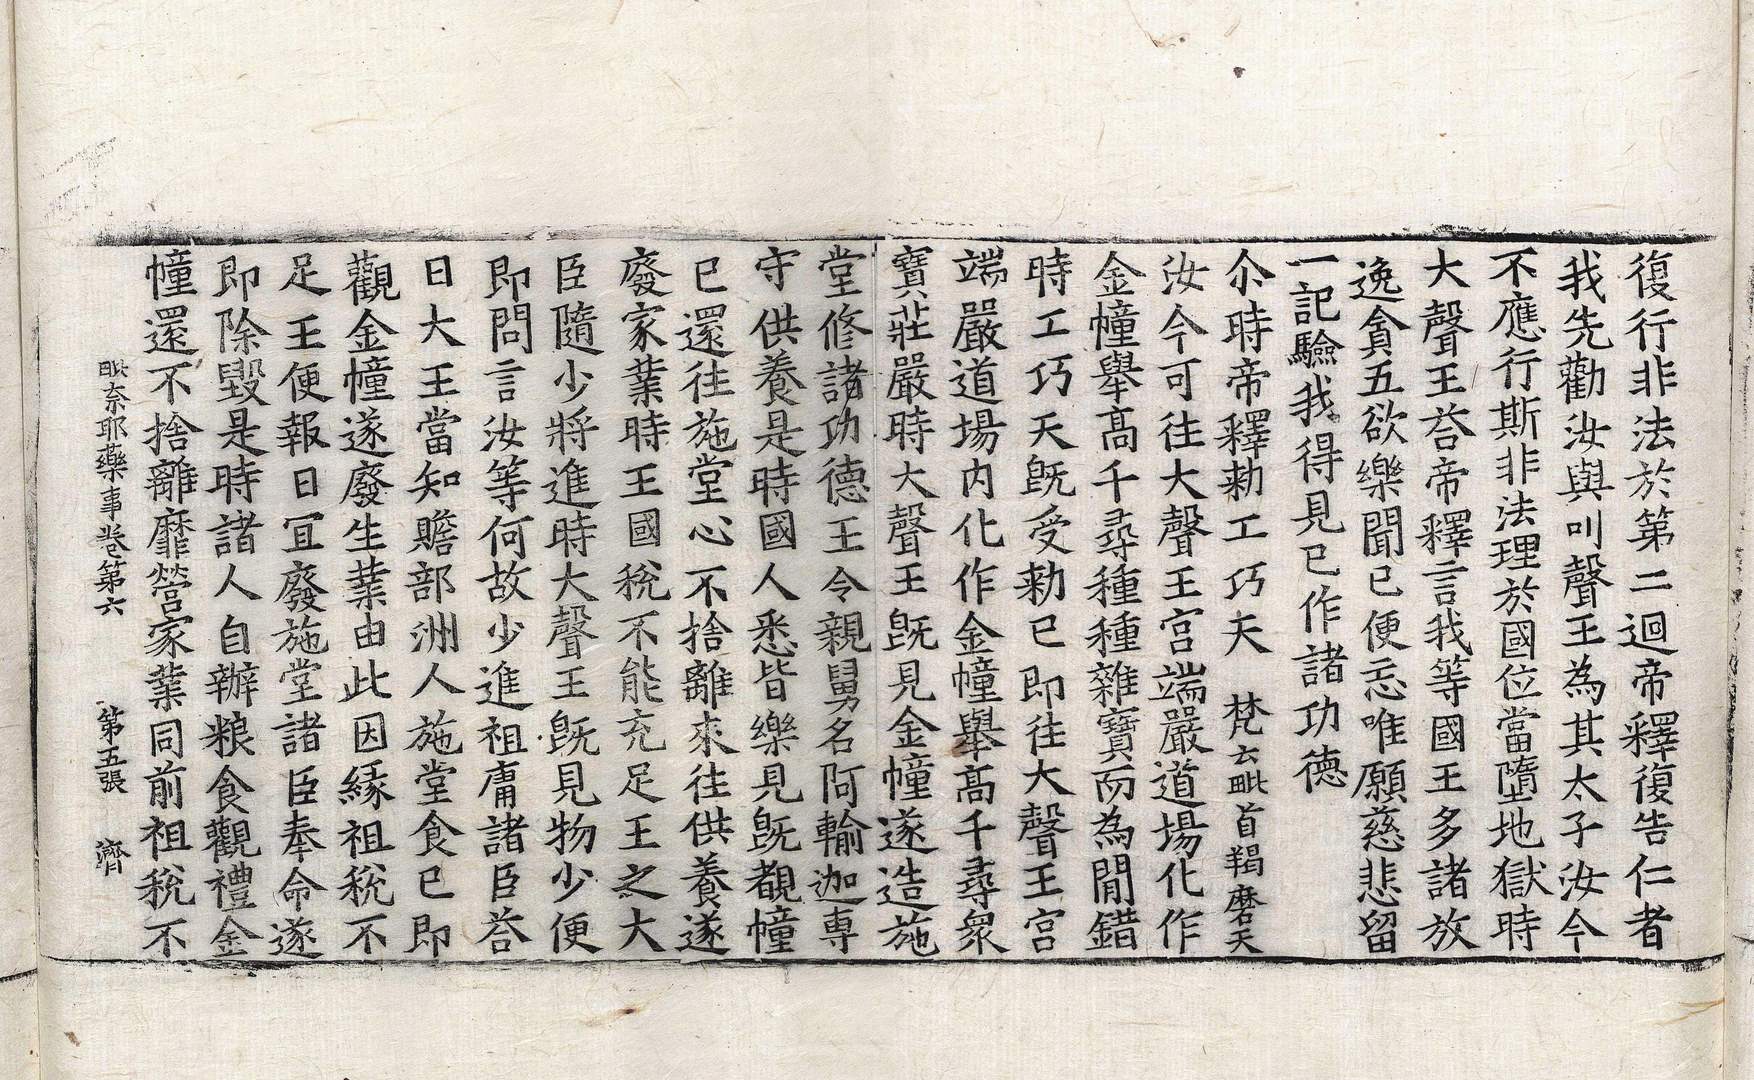 復行非法於第二迴帝釋復告仁者
我先勸汝與叫聲王為其太子汝今
不應行斯非法理於國位當墮地獄時
大聲王荅帝釋言我等國王多諸放
逸貪五欲樂聞已便忘唯願慈悲留
一記驗我得見已作諸功德
尒時帝釋勑工巧天 梵云毗首羯磨天
汝今可往大聲王宮端嚴道場化作
金幢舉高千尋種種雜寶而為間錯
時工巧天旣受勑已即往大聲王宮
端嚴道場內化作金幢舉高千尋衆
寶莊嚴時大聲王旣見金幢遂造施
堂修諸功德王令親舅名阿輸迦專
守供養是時國人悉皆樂見旣覩幢
已還往施堂心不捨離來往供養遂
廢家葉時王國稅不能充足王之大
臣隨少將進時大聲王旣見物少便
即問言汝等何故少進祖庸諸臣荅
曰大王當知贍部洲人施堂食已即
觀金幢遂廢生葉由此因緣祖稅不
足王便報曰宜廢施堂諸臣奉命遂
即除毀是時諸人自辦粮食觀禮金
幢還不捨離靡營家葉同前祖稅不
毗奈耶藥事卷第六 第五張 濟